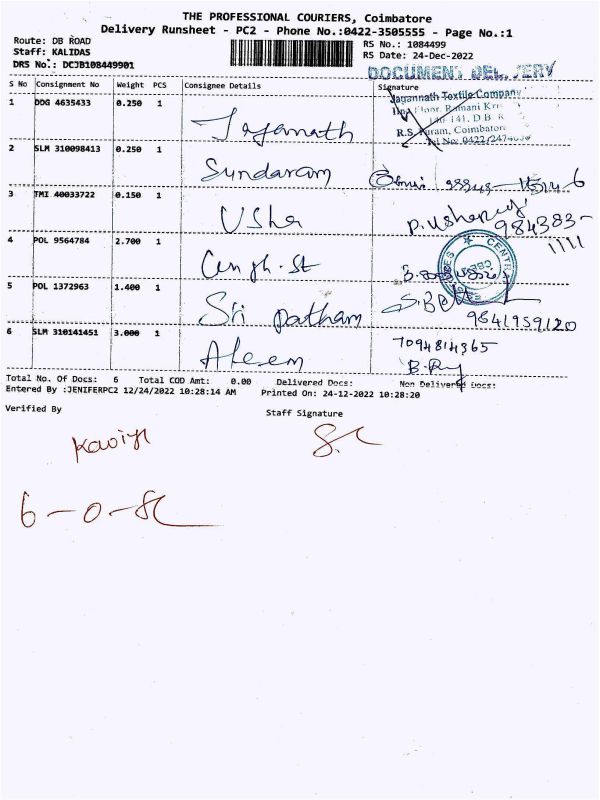 THE PROFESSIONAL COURIERS, Coimbatore
Delivery Runsheet - PC2 - Phone No.:0422-3505555 - Page No.:1
Route: DB ROAD
Staff: KALIDAS
DRS No.: DCJB108449901
RS No.: 1084499
RS Date: 24-Dec-2022
DOCUMENT DELIVERY
S No Consignment No Weight PCS Consignee Details Signature
1 DDG 4635433 0.250 1 Jagannath
Jagannath Textile Company
141, D.B
R.S. Puram, Coimbatore
2 SLM 310098413 0.250 1 Sundaram
3 TMI 40033722 0.150 1 Usha P. Usha
984383-
4 POL 9564784 2.700 1
5 POL 1372963 1.400 1 Sri patham
9841959120
6 SLM 310141451 3.000 1 Aleem 7094814365
Total No. Of Docs: 6 Total COD Amt: 0.00 Delivered Docs: Non Delivered Docs:
Entered By :JENIFERPC2 12/24/2022 10:28:14 AM Printed On: 24-12-2022 10:28:20
Verified By Staff Signature
6-0-